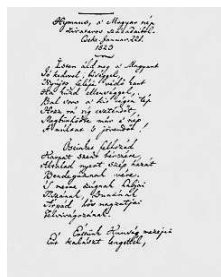 Hymnus, a' Magyar nép
zivataros századaiból.
Cseke, Januar. 22d.
1823
Isten áldd meg a' Magyart
Jó kedvvel, bőséggel,
Nyújts feléje védő kart
Ha küzd ellenséggel,
Bal sors a' kit régen tép
Hozz rá víg esztendőt,
Megbűnhődte már e' nép
A' multat 's jövendőt!
Őseinket felhozád
Kárpát szent bérczére,
Általad nyert szép hazát
Bendegúznak vére.
'S merre zúgnak habjai
Tiszának, Dunának
Árpád hős magzatjai
Felvirágozának.
Értünk Kunság mezein
Ért kalászt lengettél,